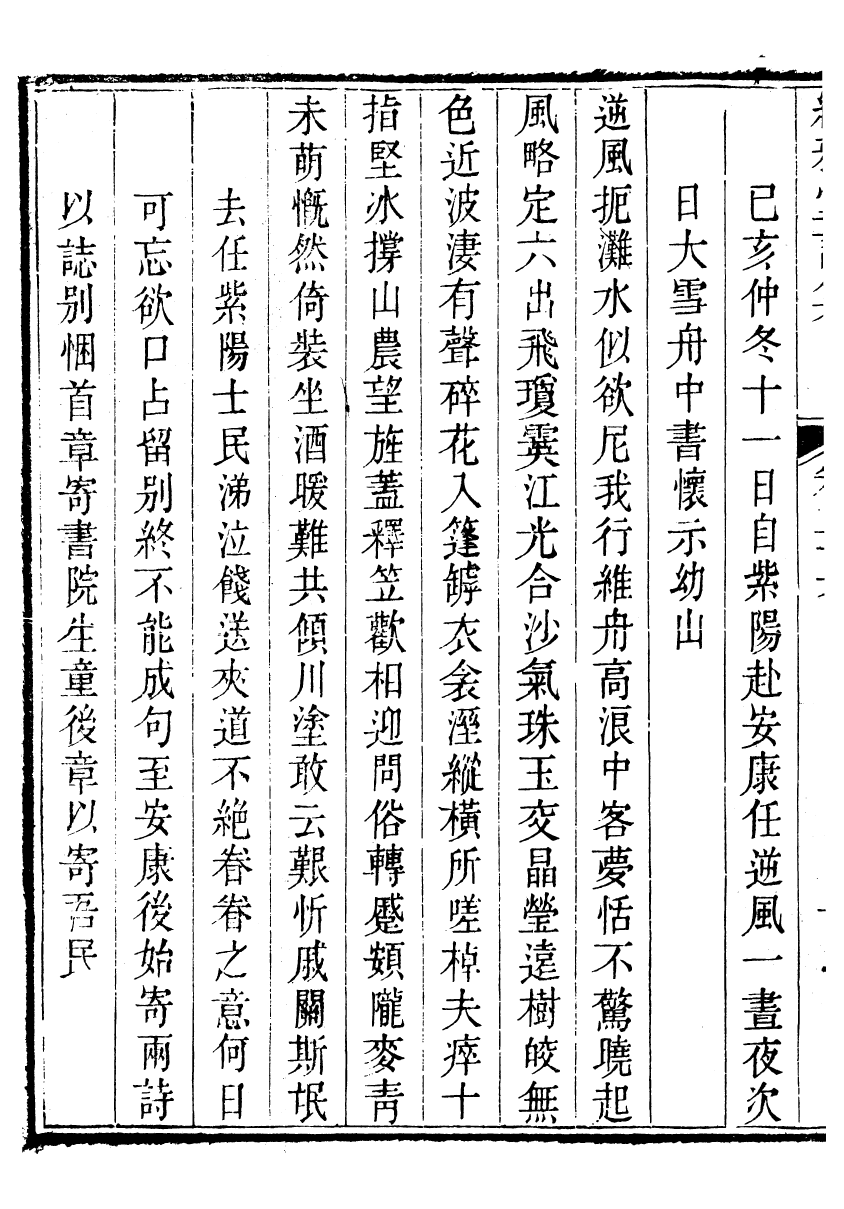 己亥仲冬十一日自紫陽赴安康任逆風一晝夜次
日大雪舟中書懷示幼山
逆風扼灘水似欲尼我行維舟高浪中客夢恬不驚曉起
風略定六出飛瓊霙江光合沙氣珠玉交晶瑩遠樹皎無
色近波淒有聲碎花入篷罅衣衾溼縱橫所嗟棹夫瘁十
指堅冰撐山農望旌蓋釋笠歡相迎問俗轉蹙頞隴麥靑
未萌慨然倚裝坐酒暖難共傾川塗敢云艱忻戚關斯氓
去任紫陽士民涕泣餞送夾道不絕眷眷之意何日
可忘欲口占留别終不能成句至安康後始寄兩詩
以誌别悃首章寄書院生童後章以寄吾民